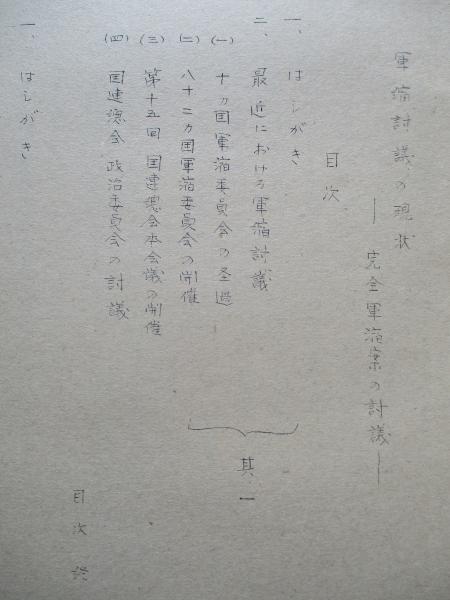 軍縮討議の現状
― 完全軍縮案の討議 ―
目次
一、はしがき
二、最近における軍縮討議
(一) 十カ国軍縮委員会の経過
(二) 八十二カ国軍縮委員会の開催
(三) 第十五回国連総会本会議の開催
(四) 国連総会政治委員会の討議
其一
目次終
一、はしがき